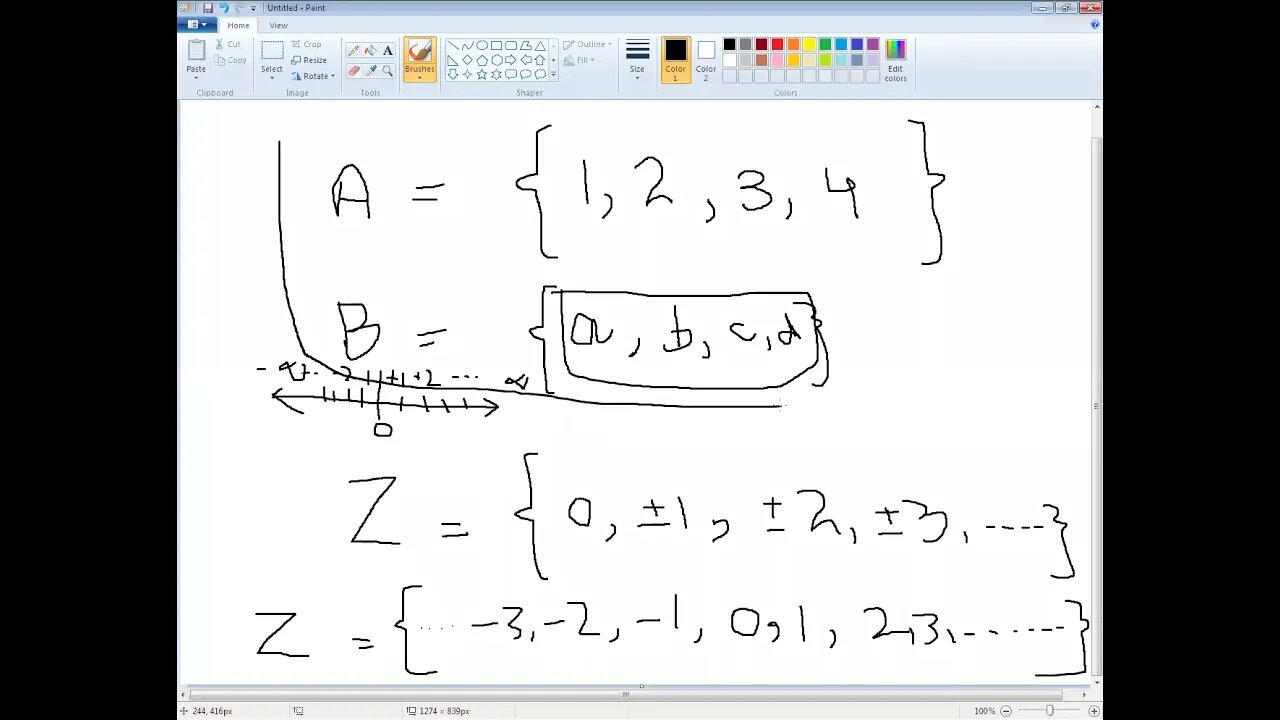 Untitled - Paint
Home View
Paste Cut Copy Select Crop Resize Rotate Brushes Outline Fill Size Color 1 Color 2 Edit colors
Clipboard Image Tools Shapes Colors
A = {1, 2, 3, 4}
B = {a, b, c, d}
+1 +2 ....
0
Z = {0, ±1, ±2, ±3, .....}
Z = {.... -3, -2, -1, 0, 1, 2, 3, .......}
244, 416px 1274 × 839px 100%